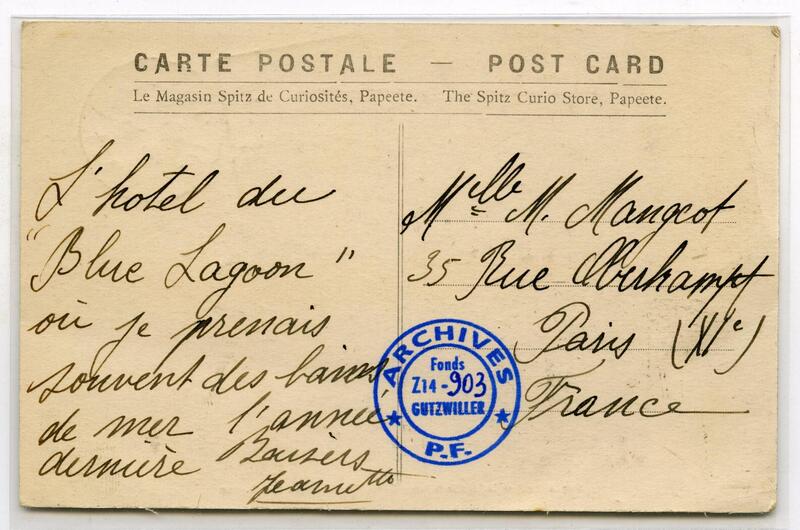 CARTE POSTALE — POST CARD
Le Magasin Spitz de Curiosités, Papeete. The Spitz Curio Store, Papeete.
L'hotel du
"Blue Lagoon"
où je prenais
souvent des bains
de mer l'année
dernière Baisers
Jeannette
Melle M. Mangeot
35 Rue Oberkampf
Paris (XIe)
France
ARCHIVES
Fonds
Z14-903
GUTZWILLER
P.F.